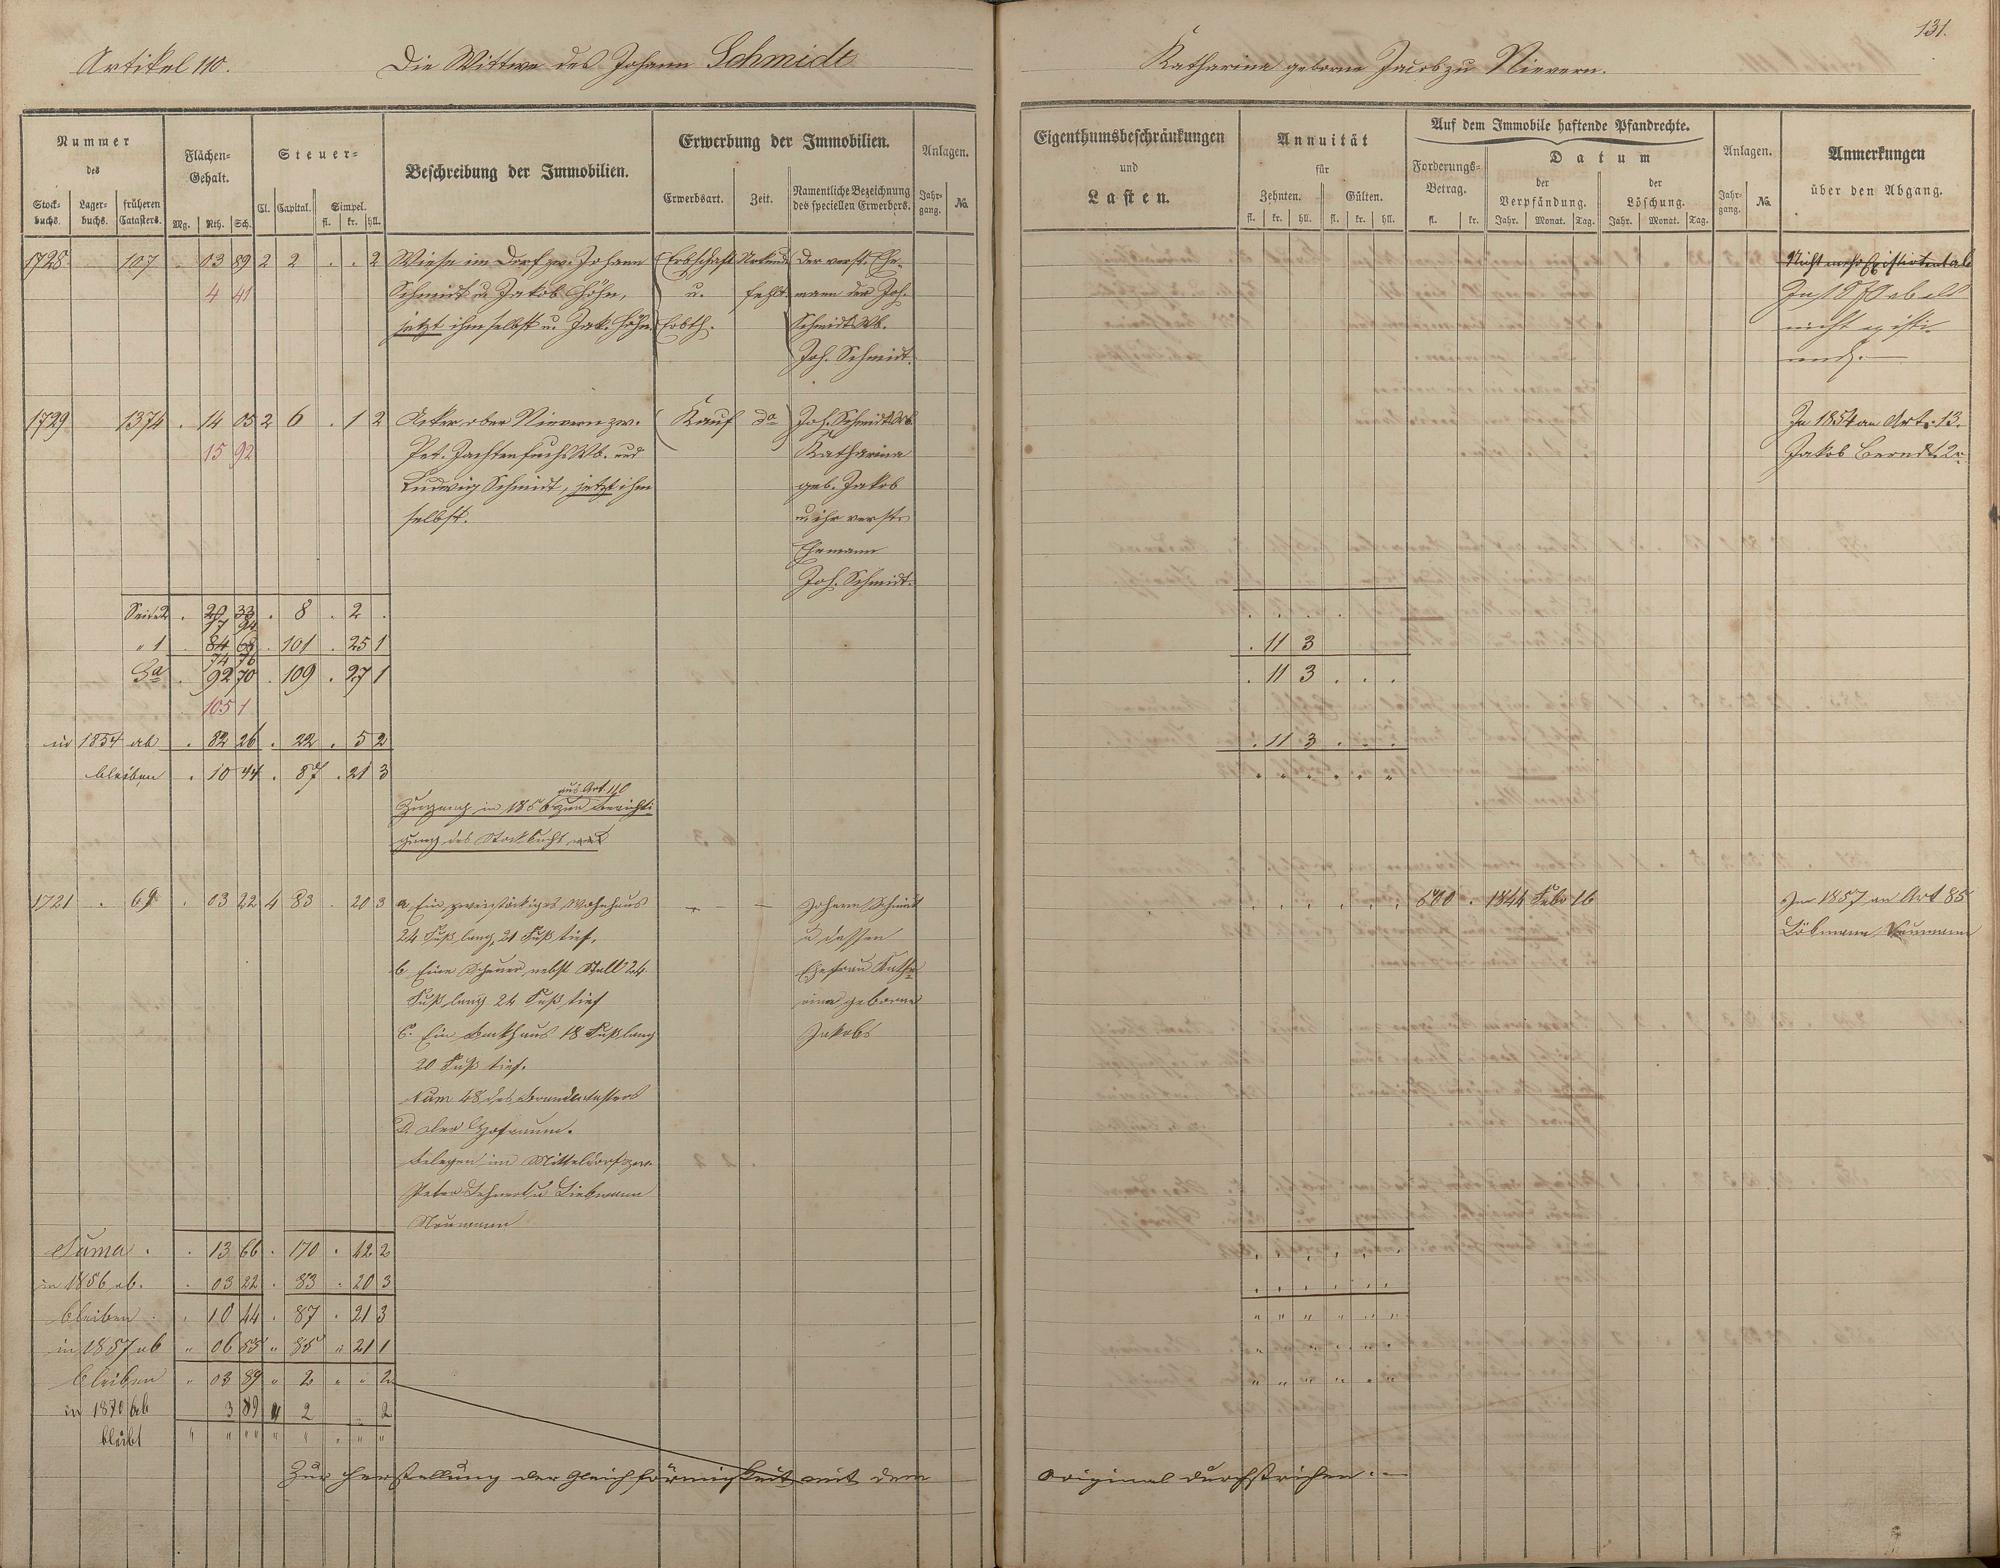 131.
Artikel 110. Die Wittwe des Johann Schmidt Katharina geborne Jacobs zu Nievern.
Nummer des
Stock-buchs. Lager-buchs. früheren Catasters.
Flächen-Gehalt.
Mg. Rth. Sch.
Steuer-
Cl. Capital. Simpel.
fl. kr. hll.
Beschreibung der Immobilien.
Erwerbung der Immobilien.
Erwerbsart. Zeit. Namentliche Bezeichnung des speciellen Erwerbers.
Anlagen.
Jahr-gang. No.
Eigenthumsbeschränkungen
und
Lasten.
Annuität
für
Zehnten. Gülten.
fl. kr. hll. fl. kr. hll.
Auf dem Immobile haftende Pfandrechte.
Forderungs-Betrag.
fl. kr.
Datum
der Verpfändung. der Löschung.
Jahr. Monat. Tag. Jahr. Monat. Tag.
Anlagen.
Jahr-gang. No.
Anmerkungen
über den Abgang.
1728 107 . 03 89 2 2 . . 2 Wiese im Dorf zw. Johann Erbschaft Urkunde Der verst. Ehe-
4 41 Schmidt u. Jakob Höhn, u. fehlt mann der Joh.
jetzt ihm selbst u. Jak. Höhn Erbth. Schmidt Wb.
Joh. Schmidt.
nicht existi-
rend. —
1729 1374 . 14 05 2 6 . 1 2 Acker ober Nievern zw. Kauf do Joh. Schmidt Wb. In 1854 an Art. 13.
15 92 Pet. Zachten Wb. und Katharina Jakob Berndt 2r
Ludwig Schmidt, jetzt ihm geb. Jakob
selbst. u. ihr verst.
Ehemann
Joh. Schmidt.
Seite 2 . 20 33 . 8 . 2 .
17 94
" 1 . 84 68 . 101 . 25 1 . 11 3
74 76
Sa . 92 70 . 109 . 27 1 . 11 3 . . .
105 1
in 1854 ab . 82 26 . 22 . 5 2 . 11 3 . . .
bleiben . 10 44 . 87 . 21 3 . . . . . .
aus Art. 110
Zugang in 1856 zur Berichti-
gung des Stockbuchs
1721 . 69 . 03 22 4 83 . 20 3 a. Ein zweistöckiges Wohnhaus — — Johann Schmidt 1844 Febr 16 Im 1857 an Art 85
24 Fuß lang, 21 Fuß tief. u dessen Neumann
b. Eine Scheuer nebst Stall 24 Ehefrau Katha-
Fuß lang 24 Fuß tief rina geborne
c. Ein Backhaus 18 Fuß lang Jakobs
20 Fuß tief.
Num 48 des Brandcatasters
D. Der Hofraum.
Belegen im Mitteldorf zw.
Peter Lehnert u Liebmann
Neumann
Suma . . 13 66 . 170 . 42 2 . . . . . .
in 1856 ab. . 03 22 . 83 . 20 3 . . . . . .
bleiben . . 10 44 . 87 . 21 3 " " " " " "
in 1857 ab " 06 55 " 85 " 21 1 " " " " " "
bleiben " 03 89 " 2 " " 2 " " " " " "
in 1870 ab 3 89 " 2 2
bleibt " " " " " " " " "
Zur Herstellung der Gleichförmigkeit mit dem Original durchstrichen. —